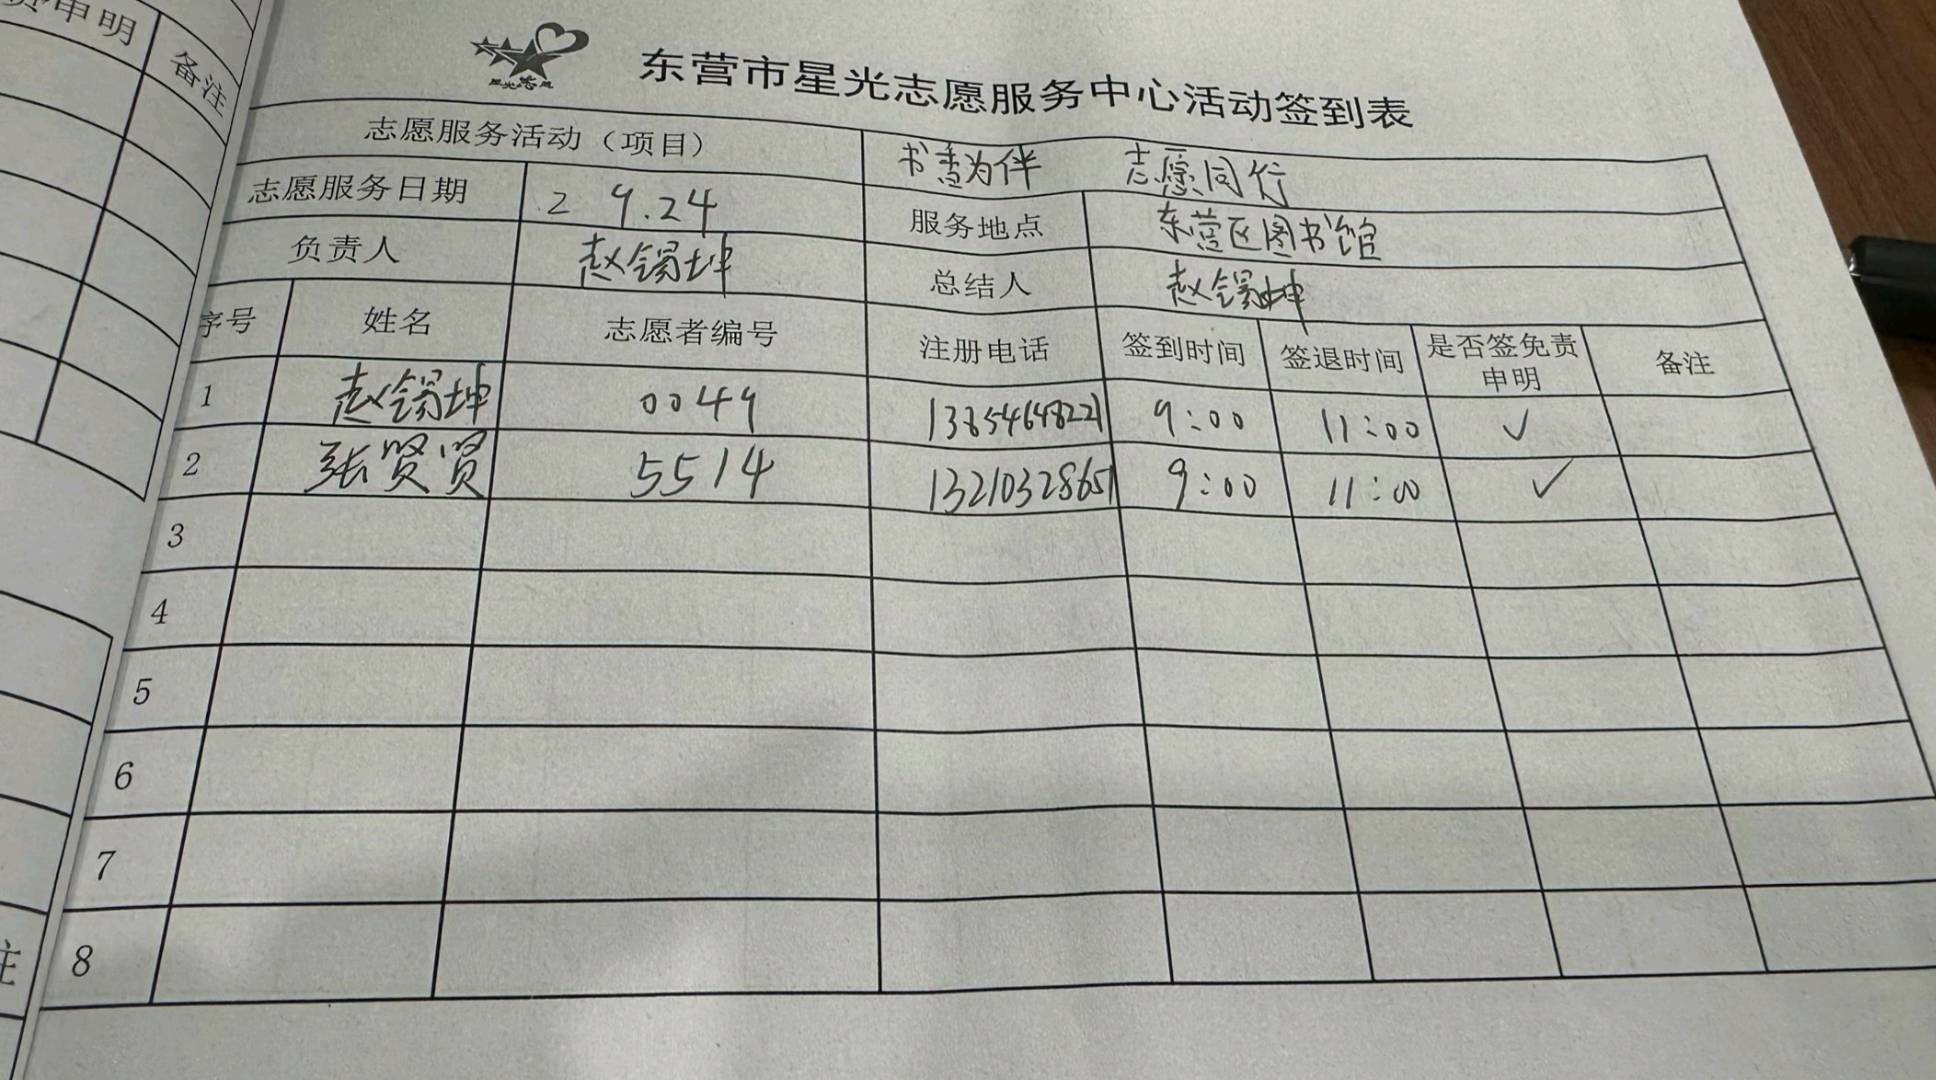 费申明
备注
星光志愿
东营市星光志愿服务中心活动签到表
志愿服务活动（项目） 书香为伴 志愿同行
志愿服务日期 2 9.24 服务地点 东营区图书馆
负责人 赵锡坤 总结人 赵锡坤
序号 姓名 志愿者编号 注册电话 签到时间 签退时间 是否签免责申明 备注
1 赵锡坤 0049 13854648221 9:00 11:00 ✓
2 张贤贤 5514 13210328651 9:00 11:00 ✓
3
4
5
6
7
8
注